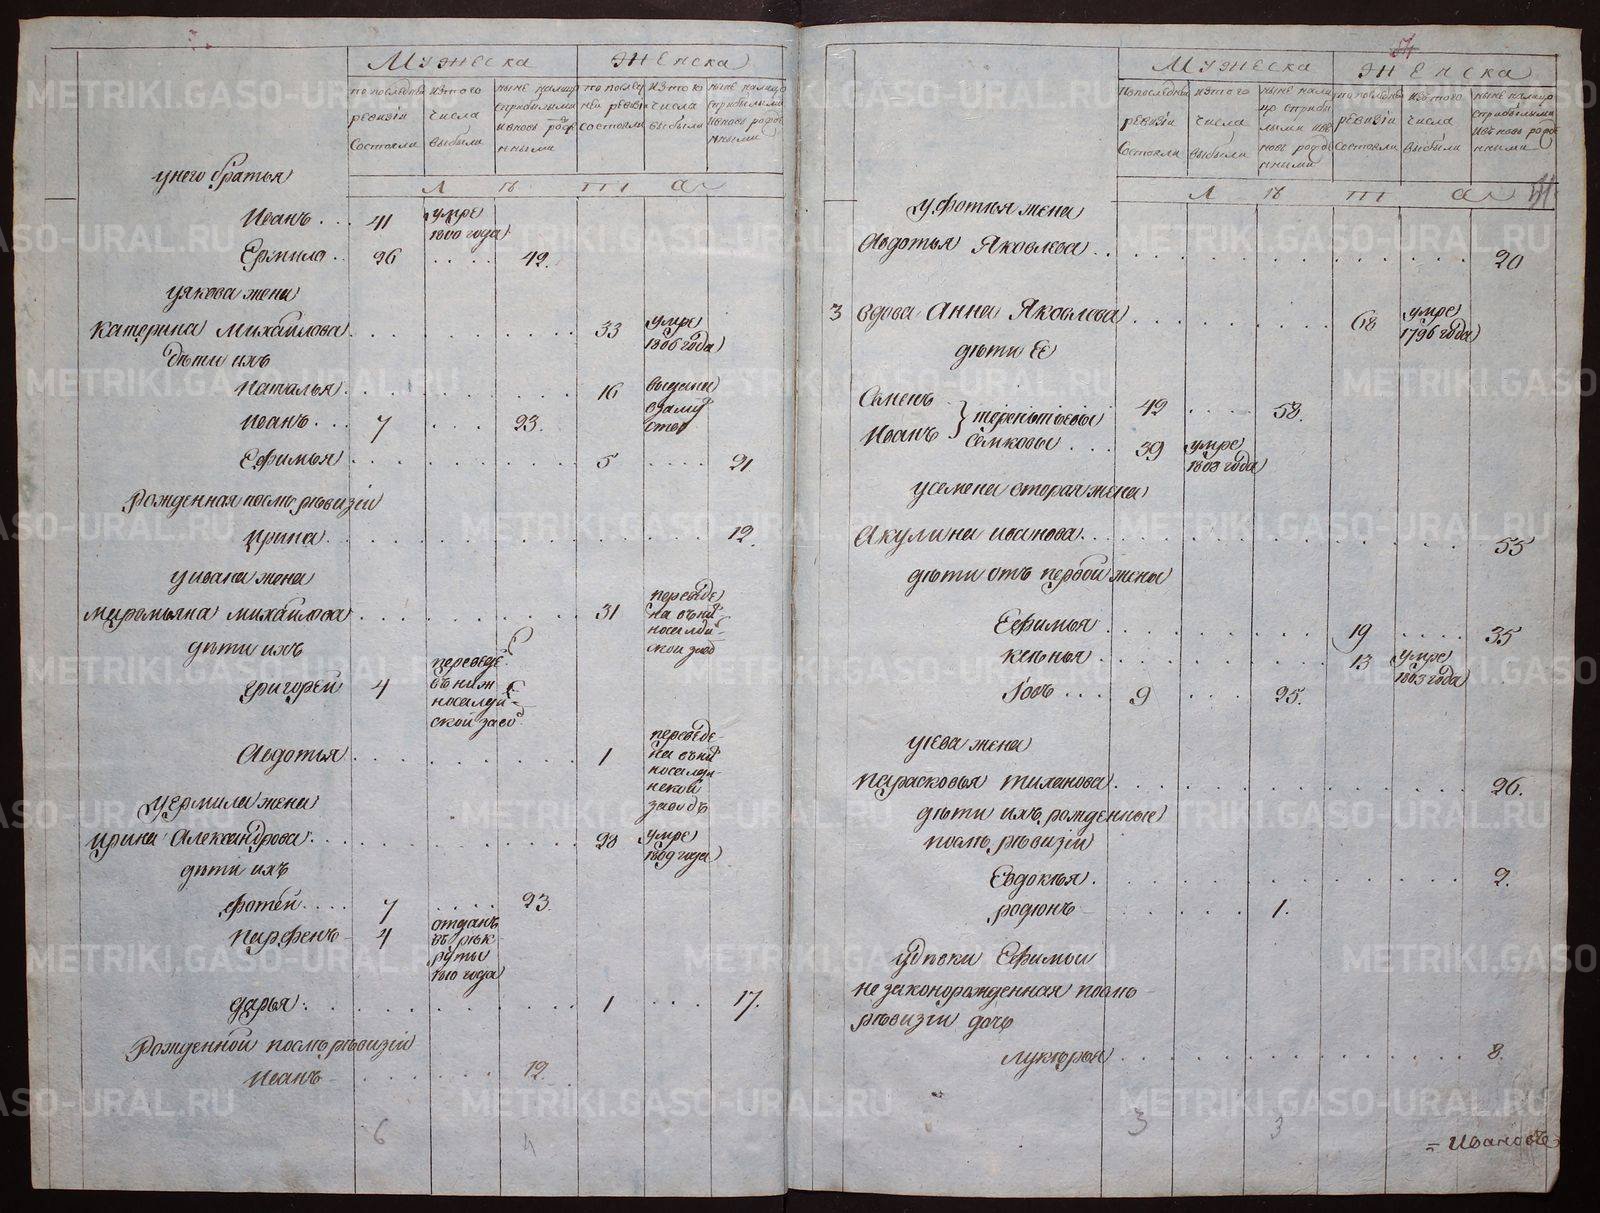 Мужеска
Женска
по последней ревизіи состояли
изтого числа выбыли
ныне налицо сприбылыми ивновь рожденными
по последней ревизіи состояли
изтого числа выбыли
ныне налицо сприбылыми ивновь рожденными
Лѣта
унего братья
Иванъ 41 умре 1800 года
Ермило 26 42.
уякова жена
катерина михайлова 33 умре 1806 года
дѣти ихъ
наталья 16 выдана взамуство
Иванъ 7 23.
Ефимья 5 21
Рожденная послѣ рѣвизіи
ирина 12.
уивана жена
маромьяна михайлова 31 переведена въ нижносалдинской завод
дѣти ихъ
григорей 4 переведенъ въ нижносалдинской завод
Авдотья 1 переведена въ нижносалдинской заводъ
уермила жена
ирина Александрова 28 умре 1809 года
дѣти ихъ
фотей 7 23.
парфенъ 4 отданъ въ рѣкруты 1810 года
дарья 1 17.
Рожденной послѣ рѣвизіи
Иванъ 12.
6
4
54
Мужеска
Женска
Попоследней ревизіи Состояли
изтого числа выбыли
ныне налицо сприбылыми ивновь рожденными
попоследней ревизіи состояли
изтого числа выбыли
ныне налицо сприбылыми ивъновь рожденными
Лѣта
уфотья жена
Авдотья Яковлева 20
3 вдова Анна Яковлева 68 умре 1796 года
дѣти Ее
Семенъ 42 58.
Иванъ терентьевы Семковы 39 умре 1803 года
усемена вторая жена
Акулина иванова 55
дѣти отъ первой жены
Ефимья 19 35
ксенья 13 умре 1803 года
Іовъ 9 25.
уіева жена
парасковья миланова 26.
дѣти ихъ рожденные
послѣ рѣвизіи
Евдокья 2.
родионъ 1.
удѣвки Ефимьи
не законорожденная послѣ
рѣвизіи дочь
лукѣрья 8.
3
3
= Ивановъ
METRIKI.GASO-URAL.RU